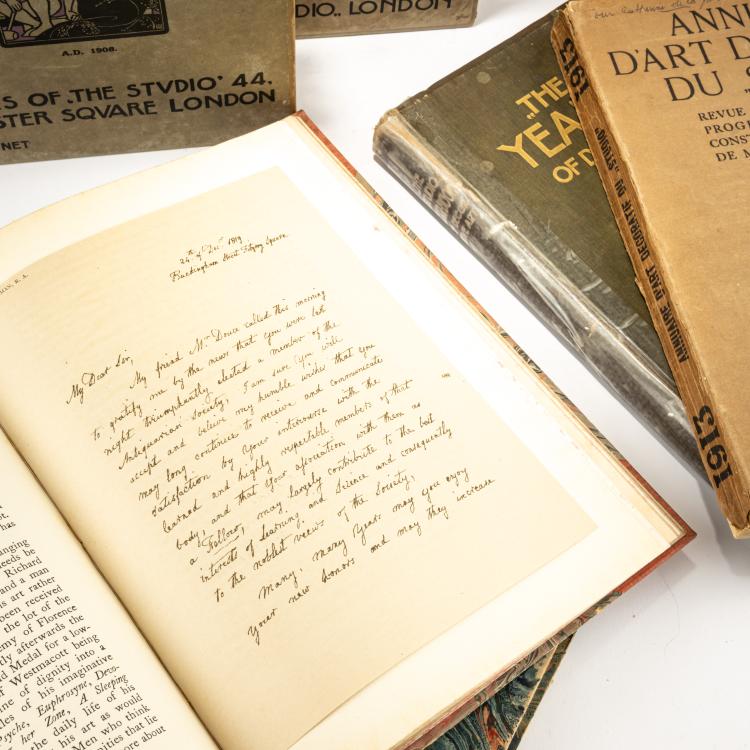 DIO., LONDON
A.D. 1908.
S OF .THE STVDIO' 44.
STER SQVARE LONDON
NET
ANNU
D'ART D
DU S
REVUE
PROG
CONST
DE M
1913
ANNUAIRE D'ART DECORATIF DU „STUDIO"
1913
„THE
YEA
OF D
ON, R. A.
24th of Dec. 1819
Buckingham Street Fitzroy Square
My Dear Sir,
My friend Mr Douce called this morning
to gratify me by the news that you were last
night triumphantly elected a member of the
Antiquarian Society, I am sure you will
accept and believe my humble wishes that you
may long continue to receive and communicate
satisfaction by your intercourse with the
learned and highly respectable members of that
body, and that your association with them as
a Fellow, may largely contribute to the best
interests of Learning and Science and consequently
to the noblest views of the Society,
Many, many Years may you enjoy
your new honors and may they increase
t.
has
anging
eeds be
Richard
and a man
is art rather
been received
the lot of the
emy of Florence
tly afterwards the
d Medal for a low-
f Westmacott being
ne of dignity into a
les of his imaginative
syche, Euphrosyne, Devo-
her Zone, A Sleeping
the daily life of his
his art as would
Men who think
ities that lie
ore about